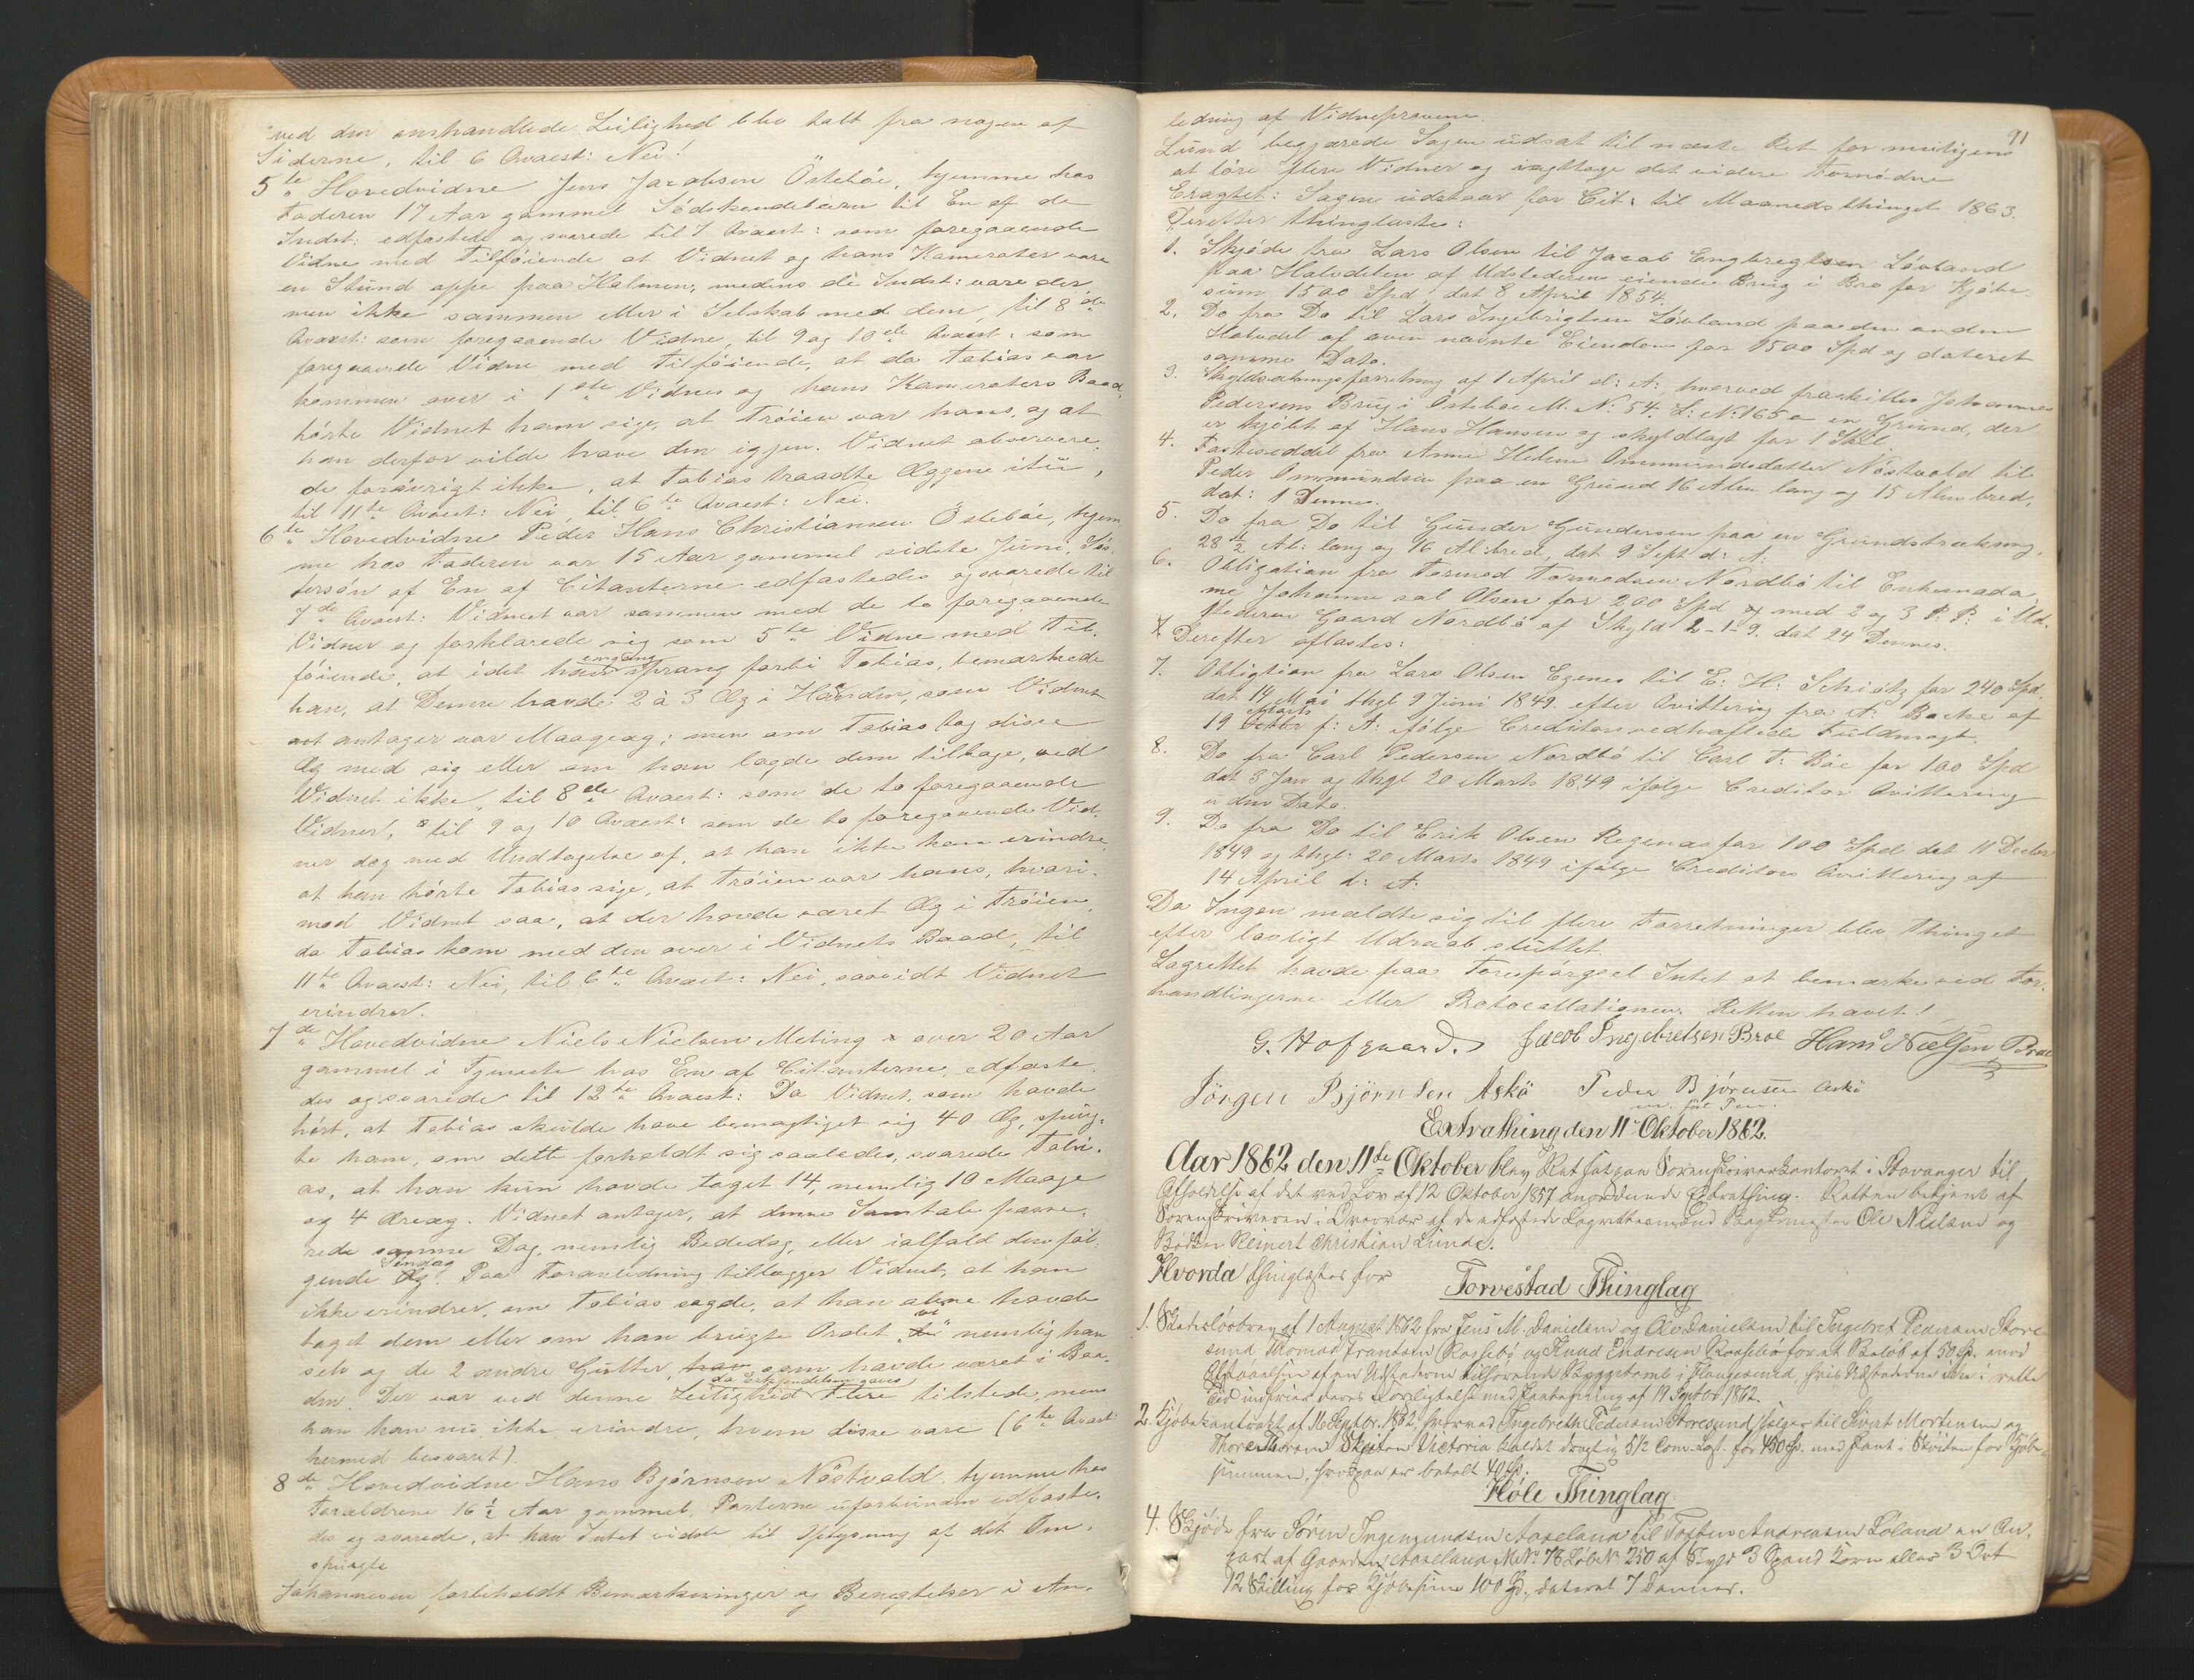 ved den omhandlede Leilighed blev talt fra nogen af
Siderne, til 6 Qvaest: Nei!
5te Hovedvidne Jens Jacobsen Östebøe, hjemme hos
Faderen 17 Aar gammel Södskendebarn til En af de
Indst: edfæstede og svarede til 7 Qvaest: som foregaaende
Vidne med Tilföiende at Vidnet og hans Kamerater vare
en Stund oppe paa Holmen, medens de Indst: vare der
men ikke sammen eller i Selskab med dem, til 8de
Qvaest: som foregaaende Vidne, til 9 og 10de Qvaest: som
foregaaende Vidne med Tilföiende, at da Tobias var
kommen over i 1ste Vidnes og hans Kameraters Baad,
hörte Vidnet ham sige, at Tröien var hans, og at
han derfor vilde have den igjen. Vidnet observere-
de forövrigt ikke, at Tobias traadte Æggene itu,
til 11te Qvaest: Nei, til 6te Qvaest: Nei.
6te Hovedvidne Peder Hans Christiansen Östebøe, hjem
me hos Faderen var 15 Aar gammel sidste Juni, Sös-
tersön af En af Citanterne edfæstedes og svarede til
7de Qvaest: Vidnet var sammen med de to foregaaende
Vidner og forklarede sig som 5te Vidne med Til-
föiende, at idet han engang sprang forbi Tobias, bemærkede
han, at Denne havde 2 à 3 Æg i Haanden, som Vidnet
antager var Maageæg; men om Tobias tog disse
Æg med sig eller om han lagde dem tilbage, ved
Vidnet ikke, til 8de Qvaest: som de to foregaaende
Vidner, til 9 og 10 Qvaest: som de to foregaaende Vid-
ner dog med Undtagelse af, at han ikke kan erindre,
at han hörte Tobias sige, at Tröien var hans, hvori-
mod Vidnet saa, at der havde været Æg i Tröien,
da Tobias kom med den over i Vidnets Baad, til
11te Qvaest: Nei, til 6te Qvaest: Nei, saavidt Vidnet
erindrer.
7de Hovedvidne Niels Nielsen Meling over 20 Aar
gammel i Tjeneste hos En af Citanterne, edfæste-
des og svarede til 12te Qvaest: Da Vidnet, som havde
hört, at Tobias skulde have bemægtiget sig 40 Æg, spurg-
te ham, om dette forholdt sig saaledes, svarede Tobi-
as, at han kun havde taget 14, nemlig 10 Maage
og 4 Æreæg. Vidnet antager, at denne Samtale passe-
rede samme Dag, nemlig Bededag, eller ialfald den föl-
gende Söndag. Paa Foranledning tillægger Vidnet, at han
ikke erindrer, om Tobias sagde, at han alene havde
taget dem eller om han brugte Ordet "vi" nemlig han
selv og de 2 andre Gutter, som havde været i Baa-
den. Der var ved denne Leilighed Flere tilstede, men
han kan nu ikke erindre, hvem disse vare (6te Qvaest
hermed besvaret).
8de Hovedvidne Hans Björnsen Nöstvold hjemme hos
Forældrene 16 1/2 Aar gammel, Parterne uforbunden edfæste-
des og svarede, at han Intet vidste til Oplysning af det Om-
spurgte
Johannesen forbeholdt Bemærkninger og Benegtelser i An-
91
ledning af Vidneprovene.
Lund begjærede Sagen udsat til næste Ret for muligens
at före flere Vidner og iagttage det videre Fornödne
Eragtet: Sagen udstaar for Cit: til Maanedsthinget 1863.
Derefter thinglæstes:
1. Skjöde fra Lars Olsen til Jacob Engbregtsen Lövland
paa Halvdelen af Udstederens eiende Brug i Bro for Kjöbe-
sum 1500 Spd, dat 8 April 1854.
2. Do fra Do til Lars Ingebrigtsen Lövland paa den anden
Halvdel af oven nævnte Eiendom for 1500 Spd og dateret
samme Dato.
3. Skyldsætningsforretning af 1 April d: A: hvorved fraskilles Johannes
Pedersens Brug i Östebøe M. N: 54. L: N: 165a en Grund, der
er kjöbt af Hans Hansen og skyldlagt for 1 Skil
4. Fæsteseddel fra Anne Helene Ommundsdatter Nöstvold til
Peder Ommundsen paa en Grund 16 Alen lang og 15 Alen bred,
dat: 1 Dennes.
5. Do fra Do til Gunder Gundersen paa en Grundstrækning
28 1/2 Al: lang og 16 Al: bred, dat 9 Sept d: A.
6. Obligation fra Tormod Tormodsen Nordbö til Enkemada-
me Johanne sal Olsen for 200 Spd med 2 og 3 P: P: i Ud-
stederens Gaard Nordbö af Skyld 2-1-9. dat 24 Dennes.
Derefter aflæstes:
7. Obligtion fra Lars Olsen Egenes til E: H: Schiötz for 240 Spd.
dat 14 Mai thgl 9 Juni 1849. efter Qvittering fra A: Bache af
19 Marts f: A: ifölge Creditors vedhæftede Fuldmagt.
8. Do fra Carl Pedersen Nordbö til Carl T: Böe for 100 Spd
dat 3 Jan og thgl 20 Marts 1849 ifölge Creditors Qvittering
uden Dato.
9. Do fra Do til Erik Olsen Regenæs for 100 Spd dat 11 Decbr
1849 og thgl: 20 Marts 1849 ifölge Creditors Qvittering af
14 April d: A:
Da Ingen meldte sig til flere Forretninger blev Thinget
efter lovligt Udraab sluttet.
Lagrettet havde paa Forespörgsel Intet at bemærke ved For-
handlingerne eller Protocollationen. Retten hævet!
G. Hofgaard. Jacob Ingebretsen Broe Hans Nielsen Broe
Jörgen Björnsen Askö Peder Björnsen Askö
Extrathing den 11 Oktober 1862.
Aar 1862 den 11te Oktober blev Ret sat paa Sorenskriverkontoret i Stavanger til
Afholdelse af det ved Lov af 12 Oktober 1857 anordnede Extrathing. Retten betjent af
Sorenskriveren i Overvær af de edfæstede Lagrettesmænd Bagermester Ole Nielsen og
Bödker Reinert Christian Lunde.
Hvorda thinglæstes for
Torvestad Thinglag
1. Skadeslösbrev af 1 August 1862 fra Jens M. Danielsen og Ole Danielsen til Ingebret Pedersen Store-
sund, Thomas Frantsen Rossebö og Knud Endresen Rossebö for et Belöb af 50 Spd. mod
Afstaaelsen af en Udstederne tilhörende Byggetomt i Haugesund, hvis Udstederne ikke i rette
Tid indfrier deres Forpligtelse med Paategning af 19 Septbr 1862.
2. Kjöbekontrakt af 16 Septbr. 1862 hvorved Ingebreth Pedersen Storesund sælger til Sivert Mortensen og
Thore Skuden Victoria kaldet drægtig 5 1/2 Com. Læst. for 450 Spd. med Pant i Skuden for Kjöbe-
summen, hvorpaa er betalt 40 Spd.
Höle Thinglag
4. Skjöde fra Sören Ingemundsen Aaseland til Torsten Andreasen Löland en An-
part af Gaarden Aaseland M. No 78 Löbe No 250 af Skyld 3 Spand Korn eller 3 Ort
12 Skilling for Kjöbesum 100 Spd., dateret 7 Dennes.